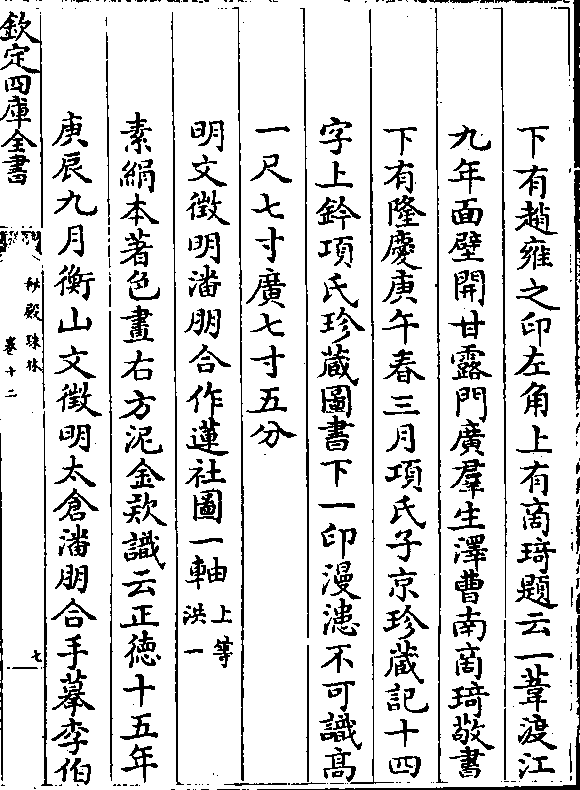 下有趙雍之印左角上有啇琦題云一葦渡江
九年面壁開甘露門廣羣生澤曹南啇琦敬書
下有隆慶庚午春三月項氏子京珍蔵記十四
字上鈐項氏珍蔵圖書下一印漫漶不可識髙
一尺七寸廣七寸五分
明文徴明潘朋合作蓮社圖一軸上等洪一
素絹本著色畫右方泥金欵識云正徳十五年
庚辰九月衡山文徴明太倉潘朋合手摹李伯
欽定四庫全書
秘殿珠林
卷十二
七